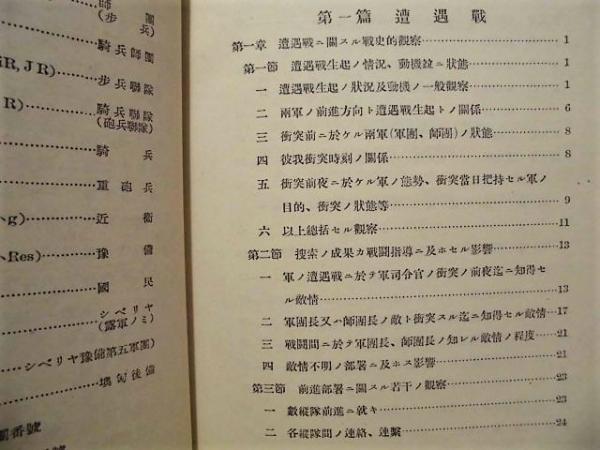 師團
(步兵)
騎兵師團
iR, JR)……步兵聯隊
R)……騎兵聯隊
(砲兵聯隊)
騎兵
重砲兵
g)……近衞
Res)……豫備
國民
シベリヤ
(露軍ノミ)
シベリヤ豫備第五軍團)
墺匈後備
番號
第一篇 遭遇戰
第一章 遭遇戰ニ關スル戰史的觀察……1
第一節 遭遇戰生起ノ情況、動機竝ニ狀態……1
一 遭遇戰生起ノ狀況及動機ノ一般觀察……1
二 兩軍ノ前進方向ト遭遇戰生起トノ關係……6
三 衝突前ニ於ケル兩軍(軍團、師團)ノ狀態……8
四 彼我衝突時刻ノ關係……8
五 衝突前夜ニ於ケル軍ノ態勢、衝突當日把持セル軍ノ
目的、衝突ノ狀態等……9
六 以上總括セル觀察……11
第二節 搜索ノ成果カ戰鬪指導ニ及ホセル影響……13
一 軍ノ遭遇戰ニ於テ軍司令官ノ衝突ノ前夜迄ニ知得セ
ル敵情……13
二 軍團長又ハ師團長ノ敵ト衝突スル迄ニ知得セル敵情……17
三 戰鬪間ニ於テ軍團長、師團長ノ知レル敵情ノ程度……21
四 敵情不明ノ部署ニ及ホス影響……21
第三節 前進部署ニ關スル若干ノ觀察……23
一 數縱隊前進ニ就キ……23
二 各縱隊間ノ連絡、連繫……24